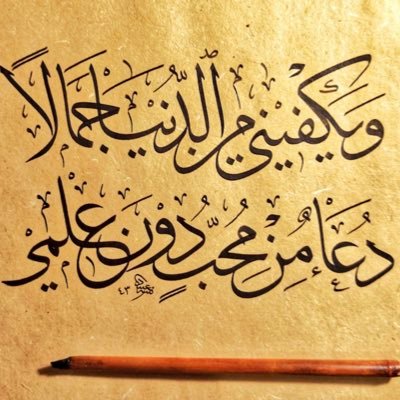 وَيَكْفِيْنِي مِنَ الدُّنْيَا جَمَالًا
دُعَاءٌ مِنْ مُحِبٍّ دُوْنَ عِلْمِي
٤٣